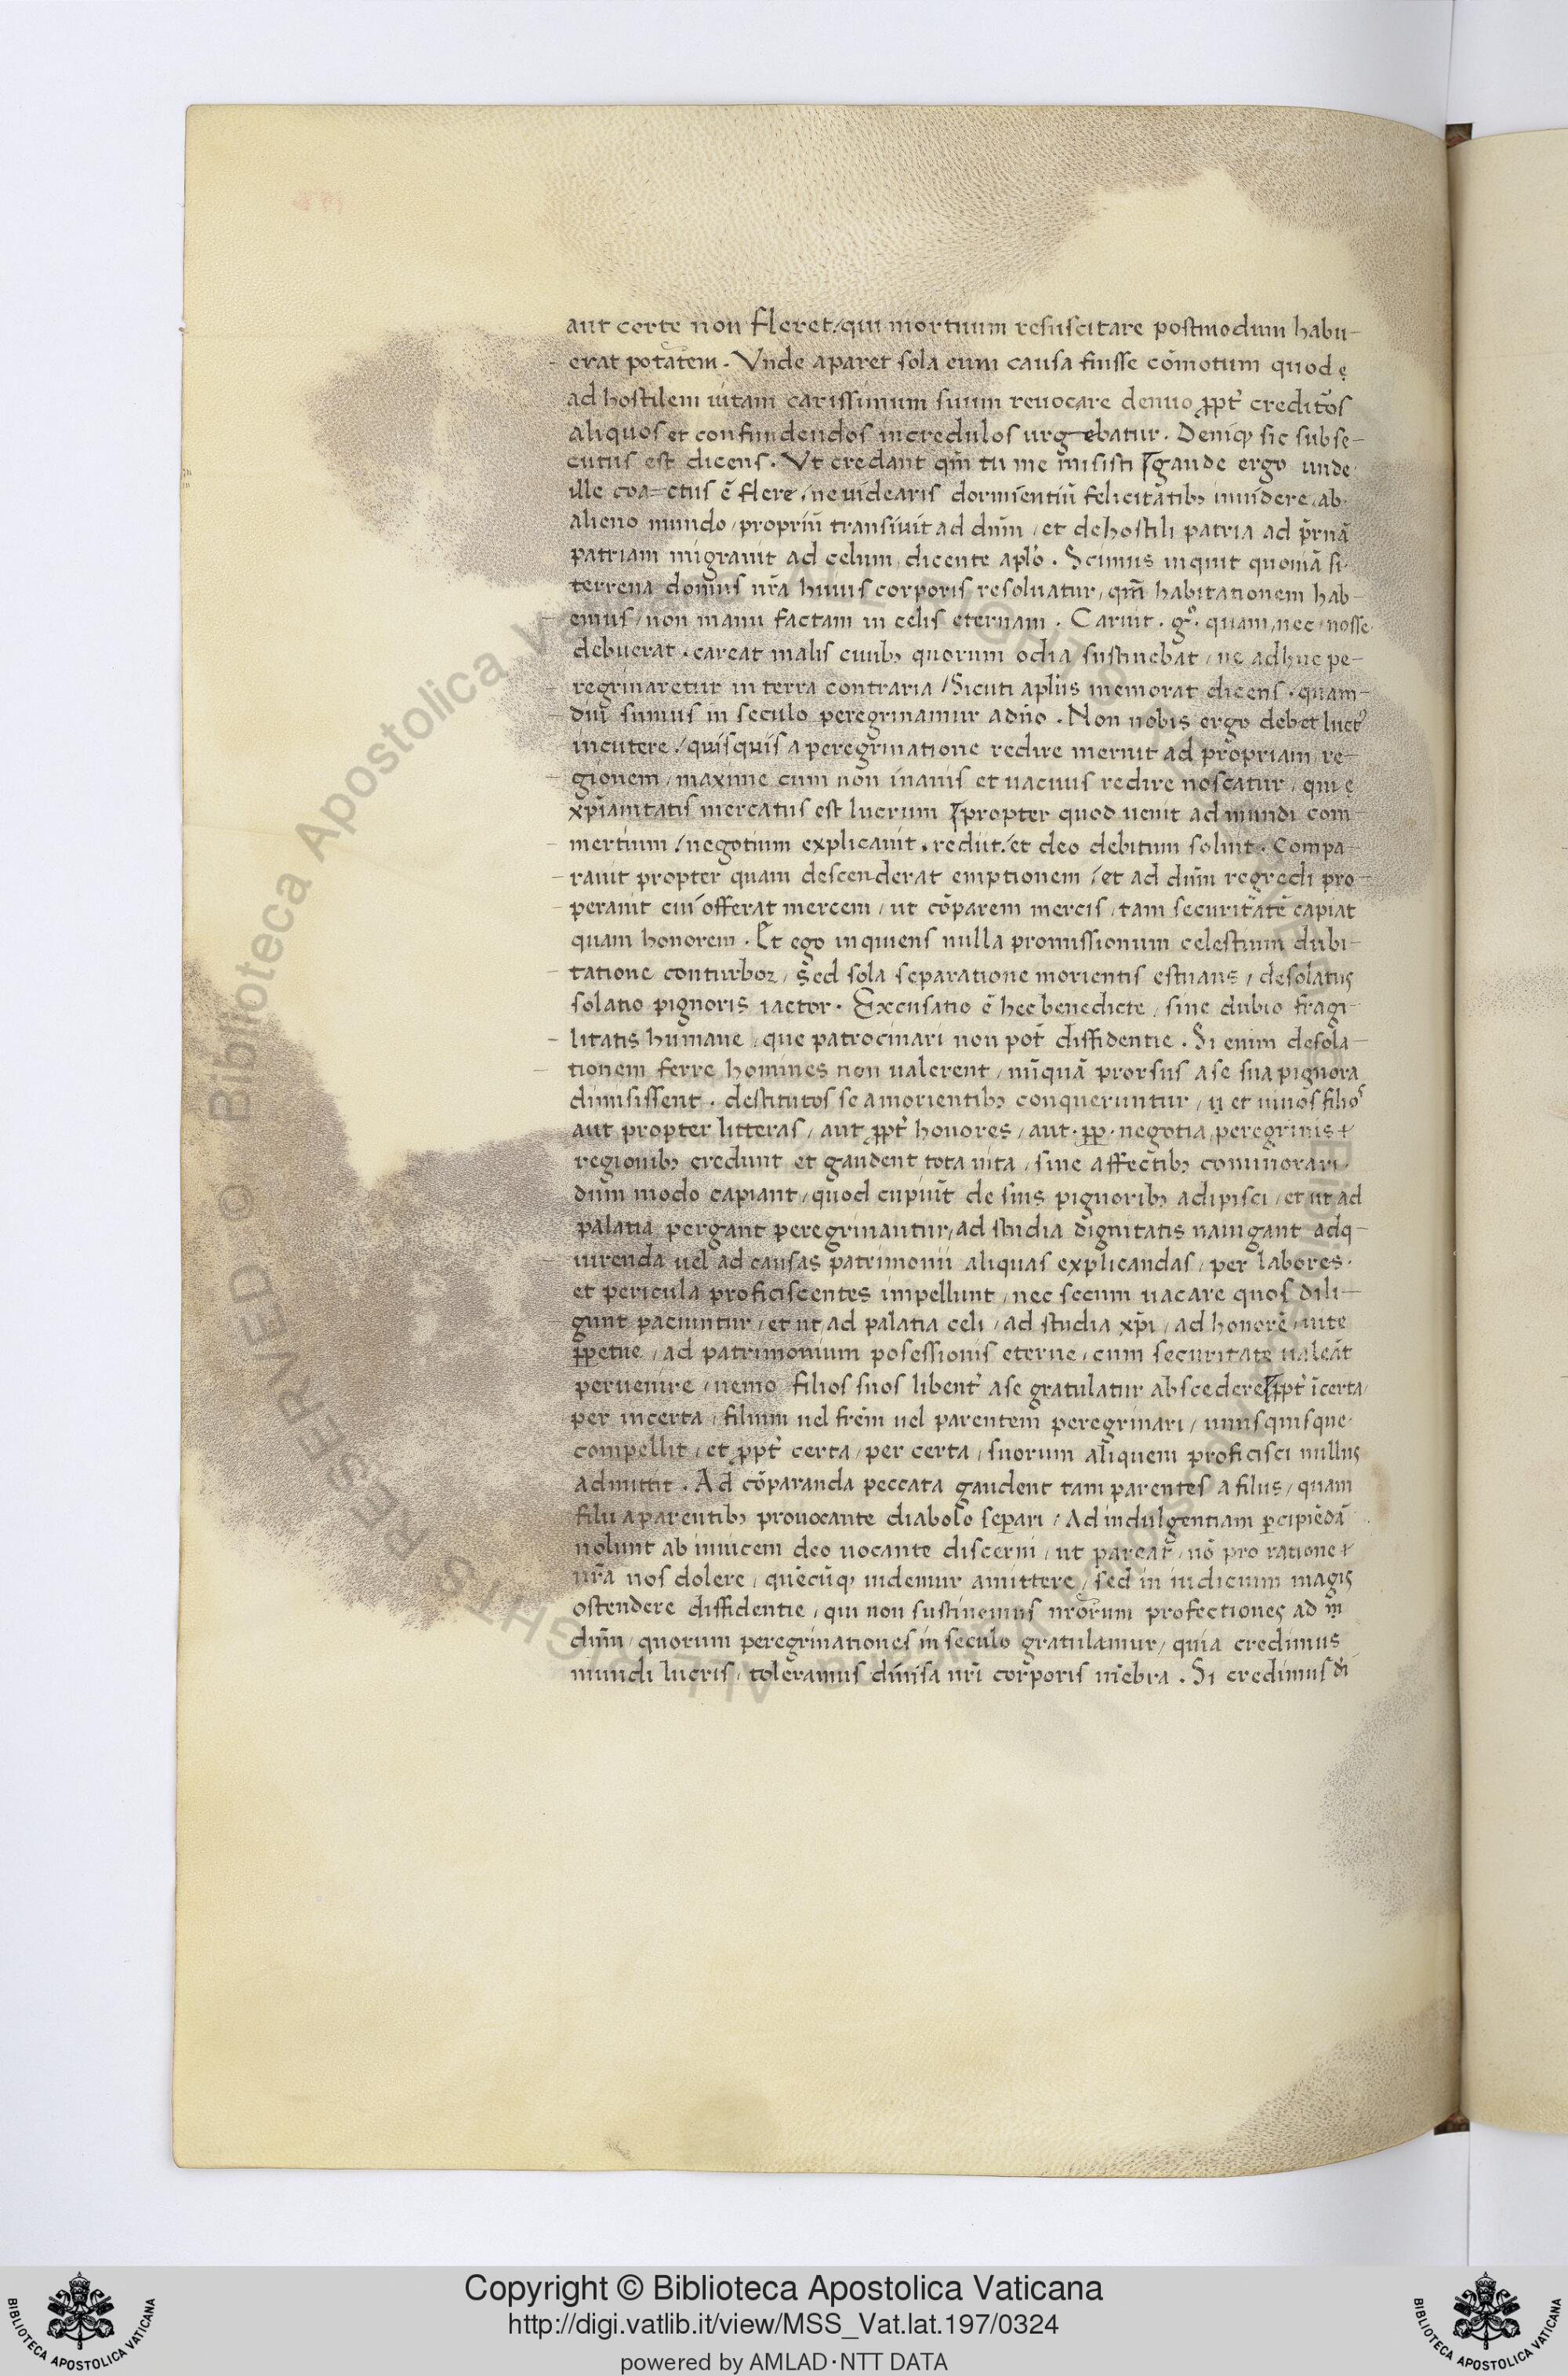 aut certe non fleret / qui mortuum resuscitare postmodum habu-
erat potatem . Vnde aparet sola eum causa fuisse cōmotum quod ę
ad hostilem uitam carissimum suum reuocare denuo ꝓpt̉ credit̉os
aliquos et confundendos incredulos urgebatur . Deniq; sic subse-
cutus est dicens . Vt credant qm̄ tu me misisti gaude ergo unde
ille coa=ctus ē flere / ne uidearis dormientiū felicitātibꝫ inuidere / ab
alieno mundo / propriū transiuit ad dn̄m / et dehostili patria ad p̄rnā
patriam migrauit ad celum dicente aplo̅ . Scimus inquit quoniā si
terrena domus nr̄a huius corporis resoluatur / qm̄ habitationem hab-
emus / non manu factam in celis eternam . Caruit . gͦ . quam nec nosse
debuerat . careat malis ciuibꝫ quorum odia sustinebat / ne adhuc pe-
regrinaretur in terra contraria / Sicuti apl̄us memorat dicens . quam-
diu sumus in seculo peregrinamur adn̄o . Non nobis ergo debet luct̉
incutere / quisquis a peregrinatione redire meruit ad propriam re-
gionem / maxime cum non inanis et uacuus redire noscatur / qui ę
xp̄ianitatis mercatus est lucrum propter quod uenit ad mundi com-
mertium / negotium explicauit . rediit / et deo debitum soluit . Compa-
rauit propter quam descenderat emptionem / et ad dn̄m regredi pro-
perauit cui offerat mercem / ut cōparem mercis / tam securitātē capiat
quam honorem . Et ego inquiens nulla promissionum celestium dubi-
tatione conturboꝛ / sed sola separatione morientis estuans / desolatus
solatio pignoris iactor . Excusatio ē hec benedicte / sine dubio fragi-
litatis humane / que patrocinari non pot̄ diffidentie . Si enim desola-
tionem ferre homines non ualerent / nūquā prorsus ase sua pignora
dimisissent . destitutos se amorientibꝫ conqueruntur / ų et uiuos filioˢ
aut propter litteras / aut ꝓpt̉ honores / aut . ꝓp . negotia peregrinis +
regionibꝫ credunt et gaudent tota uita / sine affectibꝫ commorari /
dum modo capiant / quod cupiūt de suis pignoribꝫ adipisci / et ut ad
palatia pergant peregrinantur / ad studia dignitatis nauigant adq-
uirenda uel ad causas patrimonii aliquas explicandas / per labores .
et pericula proficiscentes impellunt / nec secum uacare quos dili-
gunt paciuntur / et ut ad palatia celi / ad studia xp̄i / ad honorē / uite
ꝑpetue / ad patrimonium posessionis eterne / cum securitate ualeāt
peruenire / nemo filios suos libent̉ ase gratulatur abscedere ꝓpt̉ īcerta /
per incerta / filium uel frēm uel parentem peregrinari / unusquisque
compellit / et ꝓpt̉ certa / per certa / suorum aliquem proficisci nullus
admittit . Ad cōparanda peccata gaudent tam parentes a filiis / quam
filii aparentibꝫ prouocante diabolo separi / Ad indulgentiam ꝑcipiēdā
nolunt ab inuicem deo uocante discerni / ut pareat̉ / nō pro ratione +
nr̄a nos dolere / quēcūq; uidemur amittere / sed in iudicium magis
ostendere diffidentie / qui non sustinemus nrōrum profectiones ad
dn̄m / quorum peregrinationes in seculo gratulamur / quia credimus
mundi lucris / toleramus diuisa nr̄i corporis mēbra . Si credimus di
Copyright © Biblioteca Apostolica Vaticana
http://digi.vatlib.it/view/MSS_Vat.lat.197/0324
powered by AMLAD·NTT DATA
BIBLIOTECA APOSTOLICA VATICANA
BIBLIOTECA APOSTOLICA VATICANA